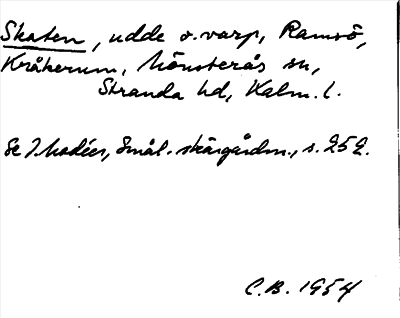 Skaten, udde o. varp, Ramsö,
Kråkerum, Mönsterås sn,
Stranda hd, Kalm. l.
Se I. Modéer, Smål. skärgårdsn., s. 252.
C.B. 1954